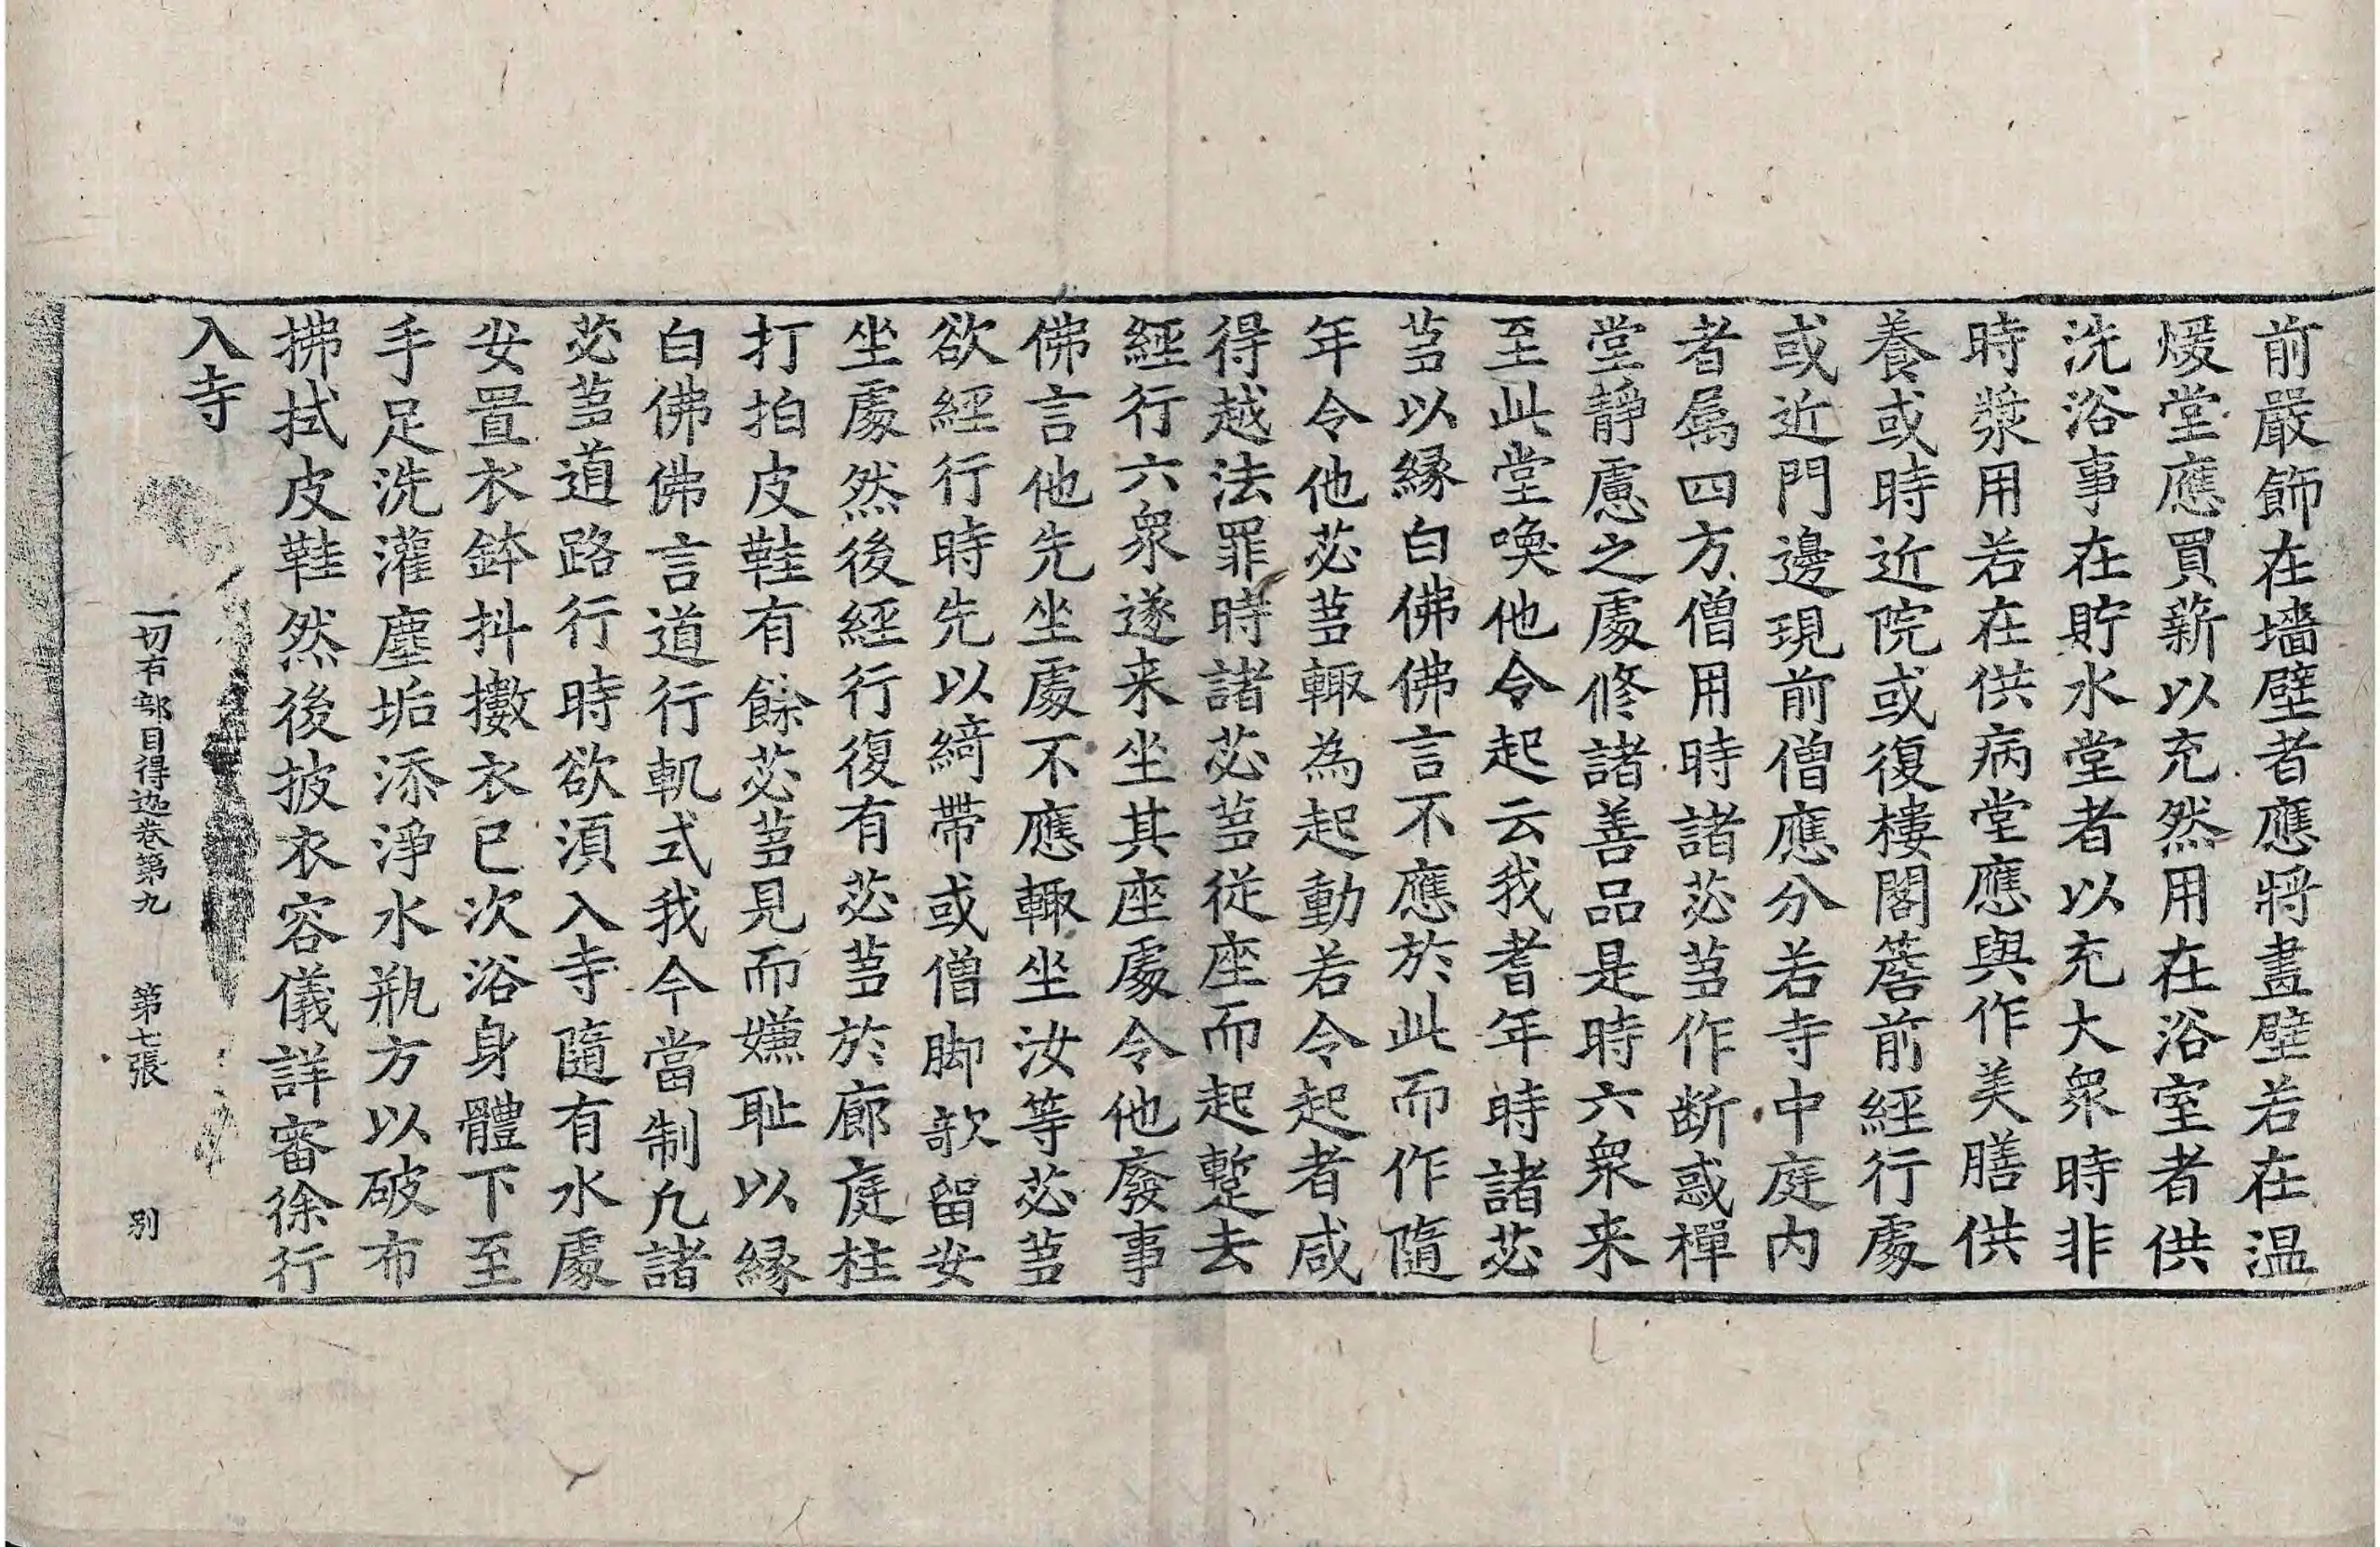 前嚴飾在墻壁者應將畫壁若在温
煖堂應買薪以充然用在浴室者供
洗浴事在貯水堂者以充大衆時非
時漿用若在供病堂應與作美膳供
養或時近院或復樓閣簷前經行處
或近門邊現前僧應分若寺中庭内
者属四方僧用時諸苾蒭作断惑禪
堂靜慮之處修諸善品是時六衆来
至此堂喚他令起云我耆年時諸苾
蒭以縁白佛佛言不應於此而作隨
年令他苾蒭輙為起動若令起者咸
得越法罪時諸苾蒭從座而起蹔去
經行六衆遂来坐其座處令他廢事
佛言他先坐處不應輙坐汝等苾蒭
欲經行時先以綺帶或僧脚欹留安
坐處然後經行復有苾蒭於廊庭柱
打拍皮鞋有餘苾蒭見而嫌耻以縁
白佛佛言道行軌式我今當制凢諸
苾蒭道路行時欲湏入寺隨有水處
安置衣鉢抖擻衣已次浴身體下至
手足洗灌塵垢添淨水瓶方以破布
拂拭皮鞋然後披衣容儀詳審徐行
入寺
一切有部目得迦卷第九 第七張 别